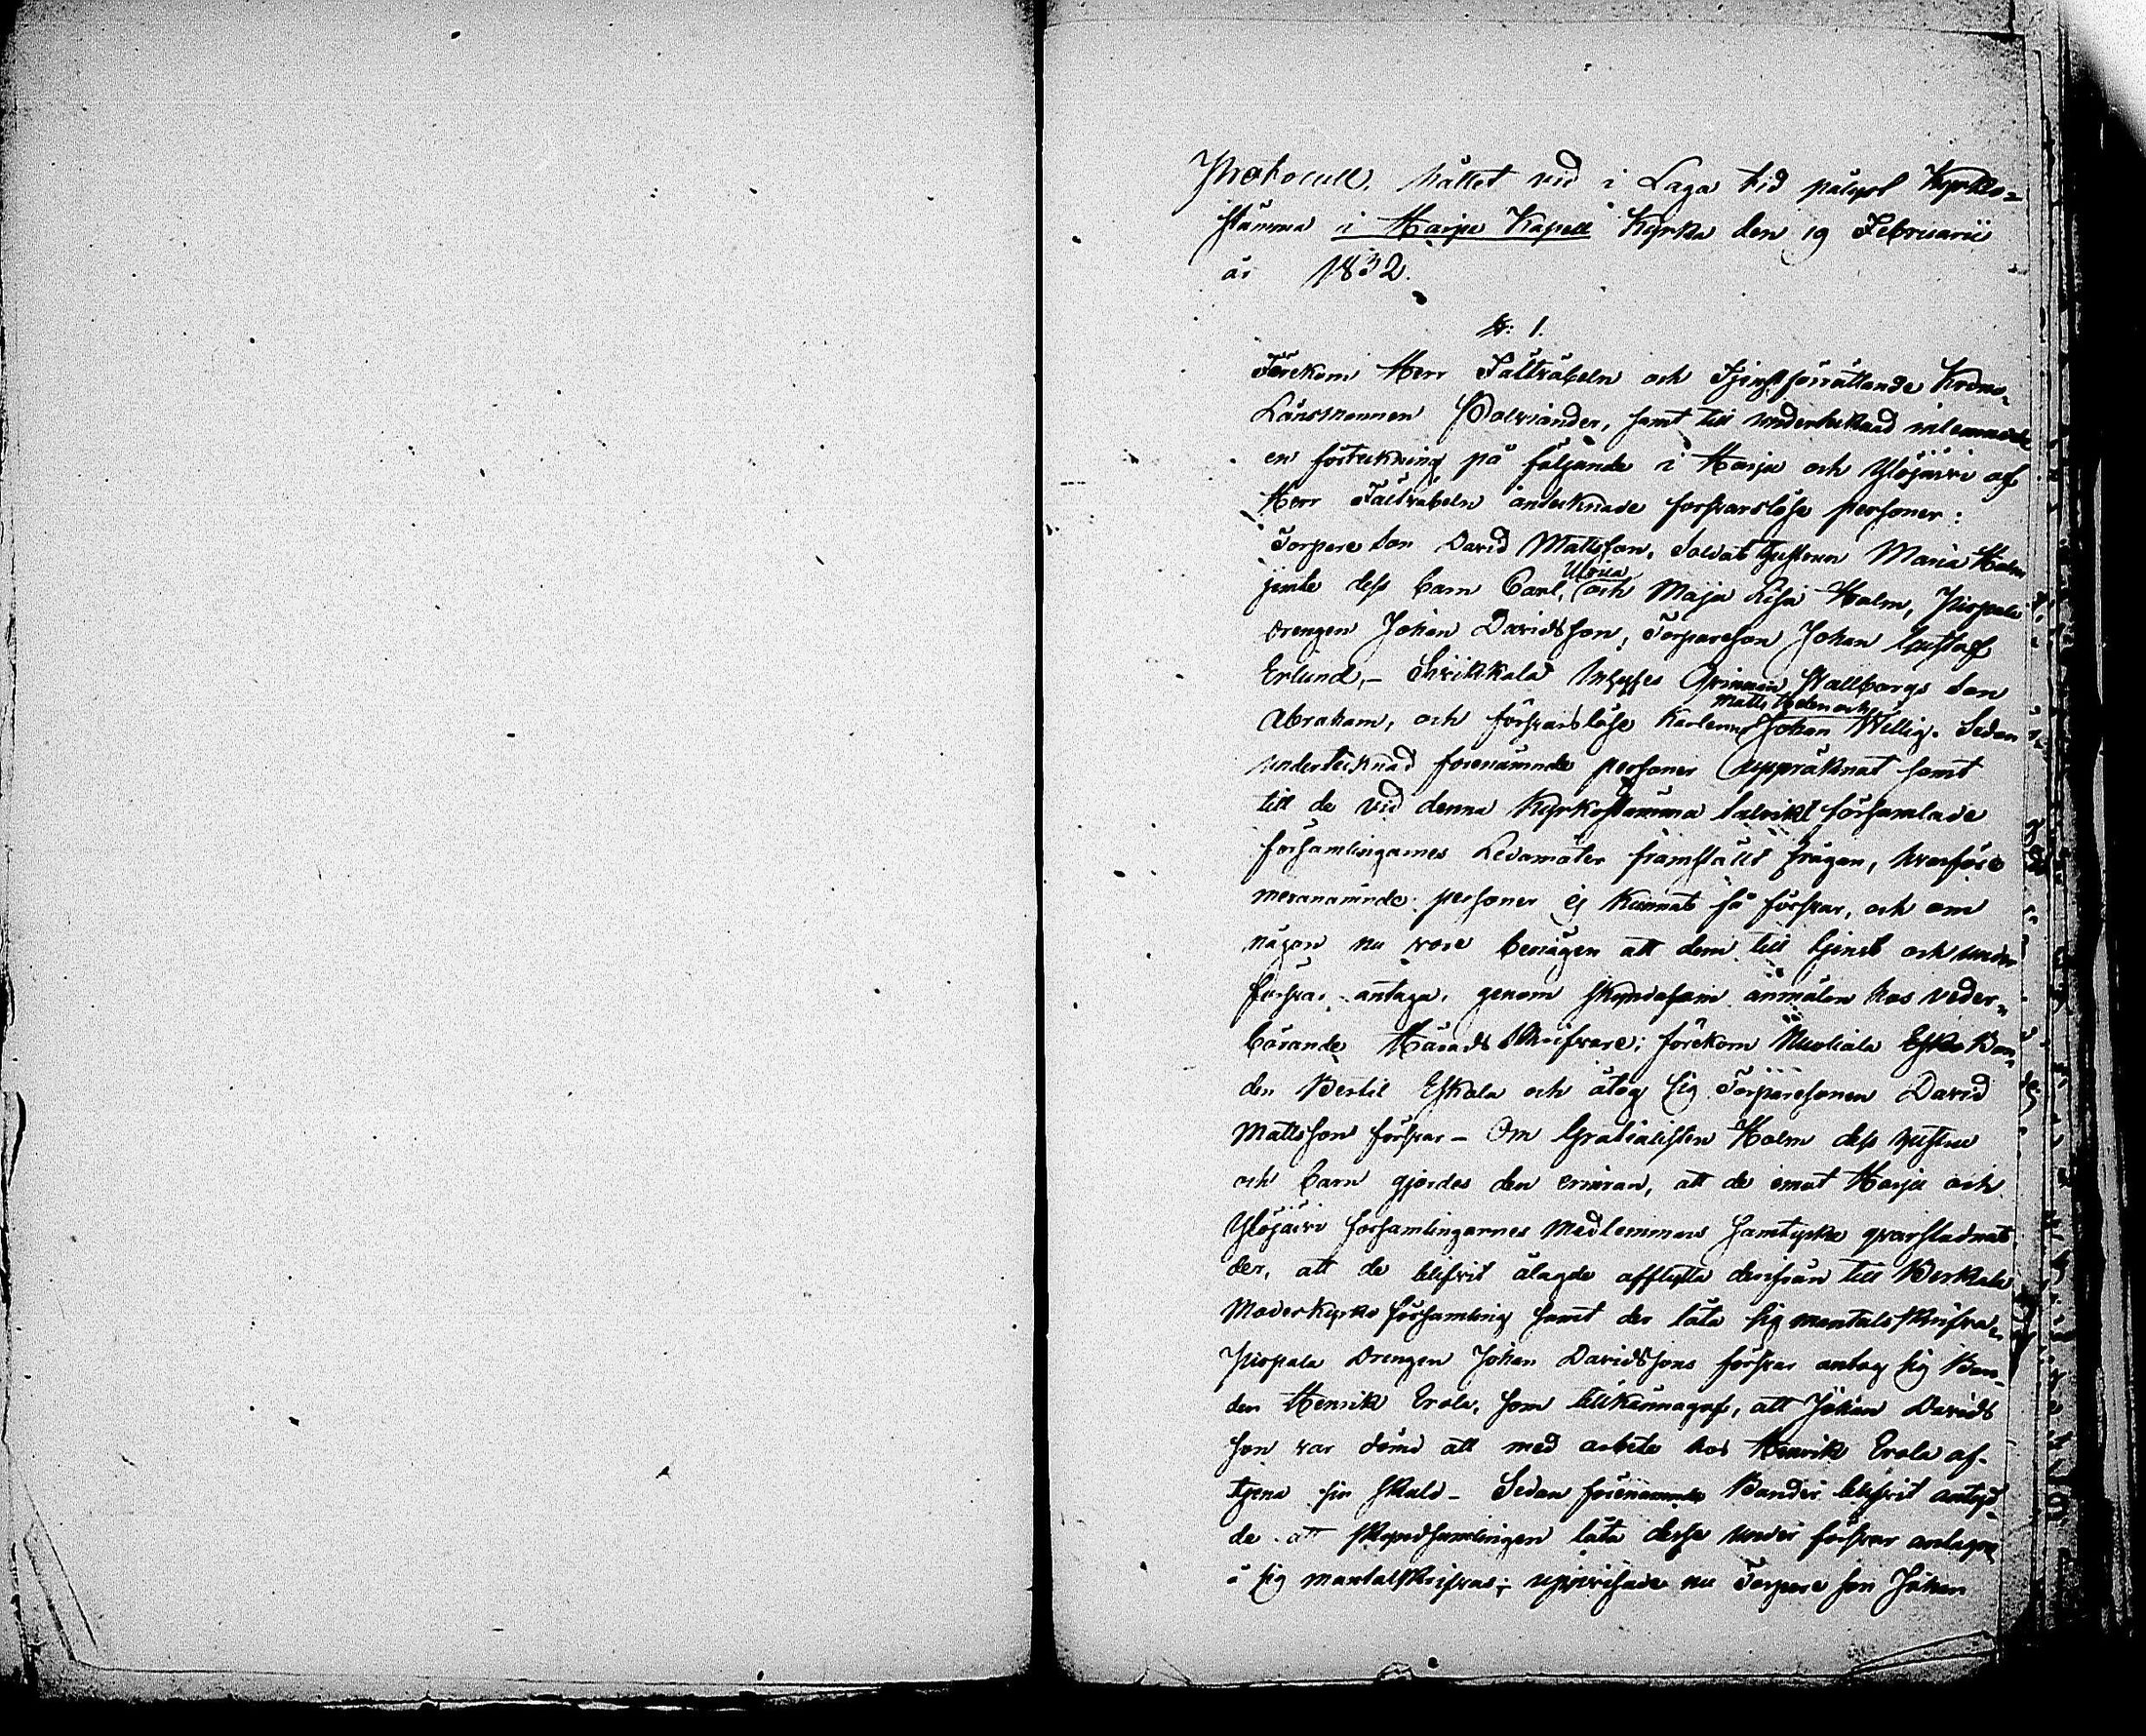 Protocoll, hållet vid i Laga tid pålyst Kyrko=
stämma i Harju Kapell Kyrka den 19 Februarii
år 1832.
N: 1.
Förekom Herr Fältväbeln och Tjenstförrättande Krono
Länsmannen Polviander, samt till undertecknad inlemnade
en förteckning på följande i Harju och Ylöjärvi af
Herr Fältväbeln antecknade försvarslöse personer:
Torpare Son David Mattsson, Soldats hustrun Maria Holm
jemte dess barn Carl, Ulrica och Maja Lisa Holm, Pispala
drengen Johan Davidsson, Torpareson Johan Gustaf
Erlund, – Inhyses Stallbergs Son
Abraham, och försvarslöse Karlarne Matts Helen och Johan Willig. Sedan
undertecknad förenämnde personer uppräknat samt
till de vid denna Kyrkostämma talrikt församlade
församlingarnes Ledamöter framställt frågan, hvarföre
meranämnde personer ej kunnat få försvar, och om
någon nu vore benägen att dem till tjenst och under
försvar antaga, genom skyndesam anmälan hos veder=
börande Härads Skrifvare; förekom Bon=
den Bertil Eskola och åtog sig Torparesonen David
Mattsson försvar – Om Gratialisten Holm dess hustru
och barn gjordes den erinran, att de emot Harju och
Ylöjärvi församlingarnes medlemmars samtycke qvarstadnat
der, att de blifvit ålagde afflytta derifrån till Birkala
Moderkyrko församling samt der låta sig mantalsskrifva
Pispala Drengen Johan Davidssons försvar antog sig Bon=
den Henrik Erola, som tillkännagaf, att Johan Davids
son var dömd att med arbete hos Henrik Erola af=
tjena sin skuld – Sedan förenämnde Bönder blifvit antyd=
de att skyndsamligen låta desse under försvar antagne
å sig mantalsskrifvas; uppvisade nu Torpare son Johan